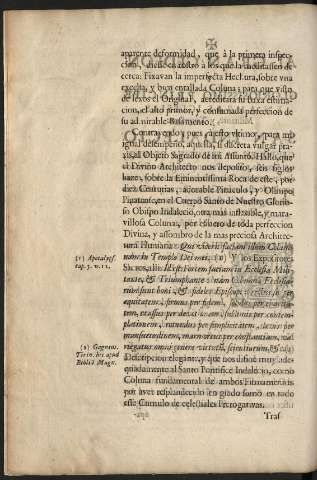 aparente deformidad, que à la primera inspec-
cion, diesse en rostro à los que la meditassen de
cerca: Fixavan la imperfecta Hechura, sobre vna
excelsa, y bien entallada Coluna; para que visto
de lexos el Original, acreditara su baxa estima-
cion, el alto primor, y consumada perfeccion de
su admirable Basamento.
Contrayendo pues aquesto vltimo, para mi
igual desempeño, aquesta, si discreta vulgar pra-
xis, al Objeto Sagrado de mi Assunto. Hallo, que
el Divino Architecto nos deposito, seis siglos
haze, sobre la Eminentissima Roca de este, por
diez Centurias, adorable Pinaculo, y Olimpo
Pinatense, en el Cuerpo Santo de Nuestro Glorio-
so Obispo Indalecio, otra mas infalible, y mara-
villosa Coluna, por esfuerço de toda perfeccion
Divina, y assombro de la mas preciosa Architec-
tura Humana: Qui vicerit faciam illum Colum-
nam in Templo Dei mei, (1) y los Expositores
Sacros, allí: Est Fortem faciam in Ecclesia Mili-
tante, & Triumphante: nam Columna Ecclesiæ
sunt boni, & fideles Episcopi
equitatem, firma per fidem,
tem, excelsa per devotionem, sublimis per contem-
plationem, rotundus per simplicitatem,
munditiem, marmoreus per constantiam,
riegatus omni genere virtutis, scientiarum, &c. (2)
Descripcion elegante, y que nos dibuxò muy ade-
quadamente al Santo Pontifice Indalecio, como
Coluna fundamental de ambos Firmamentos
por aver resplandecido en grado sumo en todo
esse Cumulo de celestiales Prerogativas.
Tras
(1) Apocalyps.
cap. 3. v. 12.
(2) Gagneus.
Tirin. hic apud
Biblia Magn.